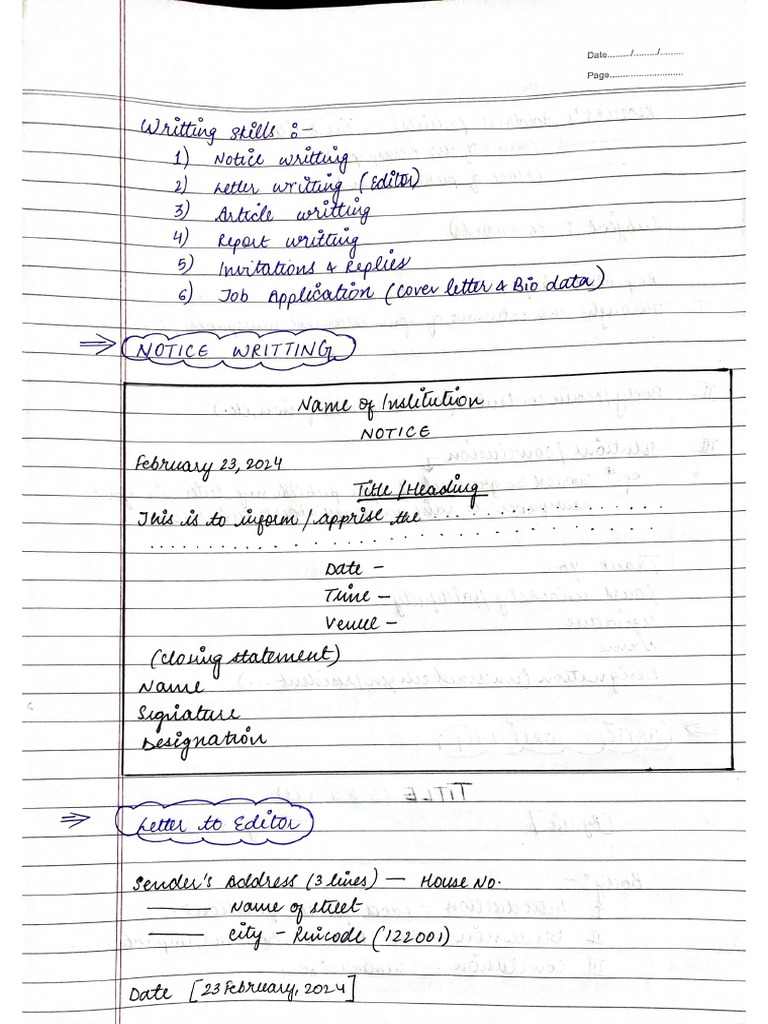 Date......../........./.........
Page............................
Writting skills :-
1) Notice writting
2) Letter writing (Editor)
3) Article writting
4) Report writting
5) Invitations & Replies
6) Job Application (Cover letter & Bio data)
⇒ NOTICE WRITTING
Name of Institution
NOTICE
February 23, 2024
Title/Heading
This is to inform / apprise the ..................
..............................
Date -
Time -
Venue -
(closing statement)
Name
Signature
Designation
⇒ Letter to Editor
Sender's Address (3 lines) — House No.
——— Name of street
——— city - Pincode (122001)
Date [23 February, 2024]